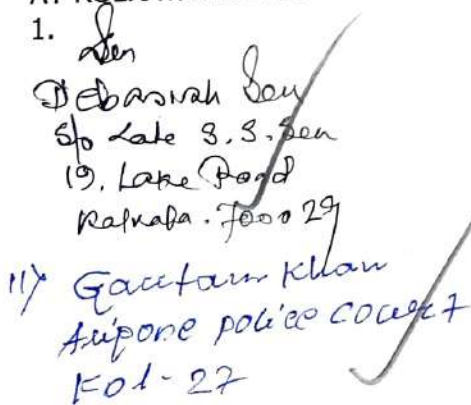 1.
Sen
Debasish Sen
S/o Late S. S. Sen
19, Lake Road
Kolkata. 700029
11) Gautam Khan
Alipore police court
Kol-27